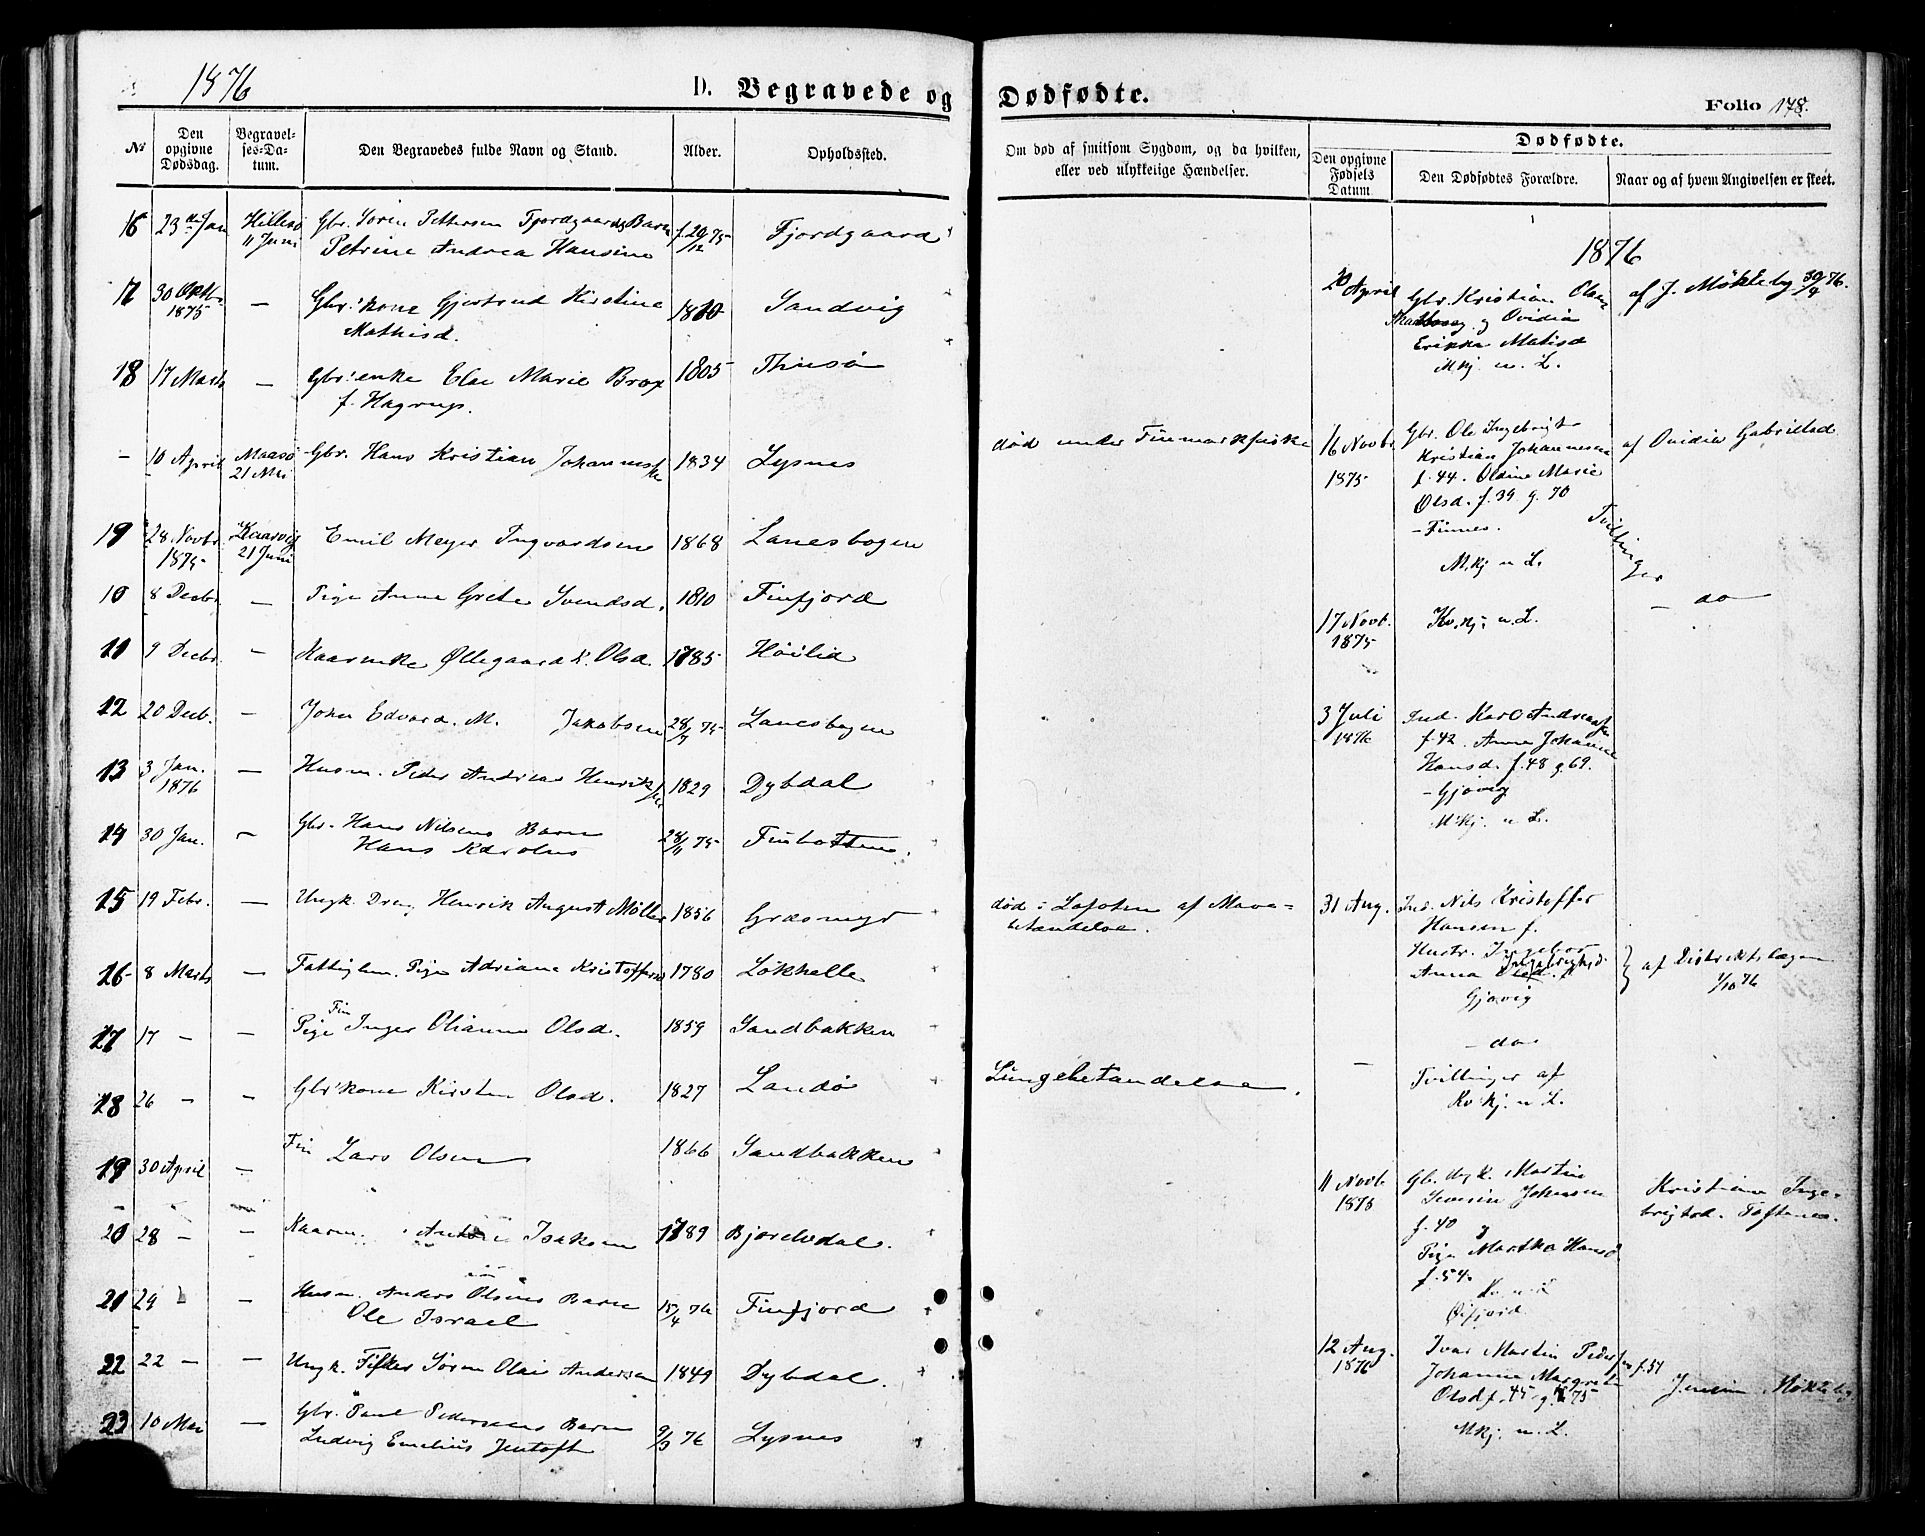 1876
D. Begravede og Dødfødte.
Folio 178.
№
Den opgivne Dødsdag.
Begravel-ses-Da-tum.
Den Begravedes fulde Navn og Stand.
Alder.
Opholdssted.
Om død af smitsom Sygdom, og da hvilken, eller ved ulykkelige Hændelser.
Dødfødte.
Den opgivne Fødsels Datum
Den Dødfødtes Forældre.
Naar og af hvem Angivelsen er skeet.
16 23de Jan Hillesø 11 Juni Gbr. Sören Pettersen Fjordgaards Barn f. 29/12 75 Fjordgaard
Petrine Andrea Hansine
17 30 Oktb. 1875 — Gbr.'kone Gjertrud Kirstina 1810 Sandvig
Mathisd.
18 17 Marts — Gbr.'enke Else Marie Brox 1805 Tinsø
f. Hagrup.
- 10 April Maasø 21 Mai Gbr. Hans Kristian Johannessen 1834 Lysnes død under Finmarkfiske
19 28 Novbr. 1875 21 Juni Emil Meyer Ingvardsen 1868 Lanesbogen
10 8 Decbr. — Pige Anna Grete Svendsd. 1810 Finfjord
11 9 Decbr. — Kaarenke Øllegaard K. Olsd. 1785 Höilid
12 20 Decb. — John Edvard M. Jakobsen 28/9 75 Lanesbogen
13 3 Jan. 1876 — Husm. Peder Andreas Henriksen 1829 Dybdal
14 30 Jan. — Gbr. Hans Nilsens Barn 28/11 75 Finbotten.
Hans Karolus
15 19 Febr. — Ungk. Dreng Henrik August Möller 1856 Græsmyr død i Lofoten af Mave=
betændelse.
16 8 Marts — Fattiglem. Pige Adriana Kristoffersd 1780 Løkhelle
17 17 — — Fin Pige Inger Olianna Olsd. 1859 Sandbakken
18 26 — — Gbr'kone Kirsten Olsd. 1827 Landø Lungebetændelse.
19 30 April — Fin Lars Olsen 1866 Sandbakken
20 28 — — Kaarm. Isaksen 1789 Bjorelvdal.
21 29 — — Husm. Anders Olsens Barn 15/4 76 Finfjord
Ole Israel
22 22 — — Ungk. Fisker Sören Olai Andersen 1849 Dybdal.
23 10 Mai — Gbr. Paul Pedersens Barn 9/3 76 Lysnes
Ludvig Emelius Jentoft
1876
20 April Gbr. Kristian Olsen af J. Møkleby 30/4 76.
og Ovidia
Erikka Matisd
M.kj. u. L.
16 Novbr. 1875 Gbr. Ole Ingebrigt af Ovidia Gabrielsd
Kristian Johannesen
f. 44. Oldine Marie
Olsd. f. 39 g. 70
- Finnes.
Tvillinger
M.kj u L.
17 Novb. 1875 Kv.kj. u. L. — do
3 Juli 1876 Ind. Karl Andreassen
f. 42. Anna Johanna
Hansd. f. 48 g. 69.
- Gjøvig
M.kj. u L.
31 Aug. Ind. Nils Kristoffer
Hansen f.
Hustr. Ingebor
Anna Ingebrigtsd. } af Distriktslægen 1/10 76
Gjøvig
— — do
Tvillinger af
Kv kj. u. L.
11 Novb. 1875 Gb. Ungk. Martin Kristian Inge-
Severin Johnsen brigtsd. Toftenes.
f. 40 g
Pige Martha Hansd
f. 54.
Kv. u L
Øifjord
12 Aug. 1876 Ivar Martin Pedersen f. 51
Johanna Margrete Møkleby
Olsd f. 45 g. 75
M.kj. u. L.